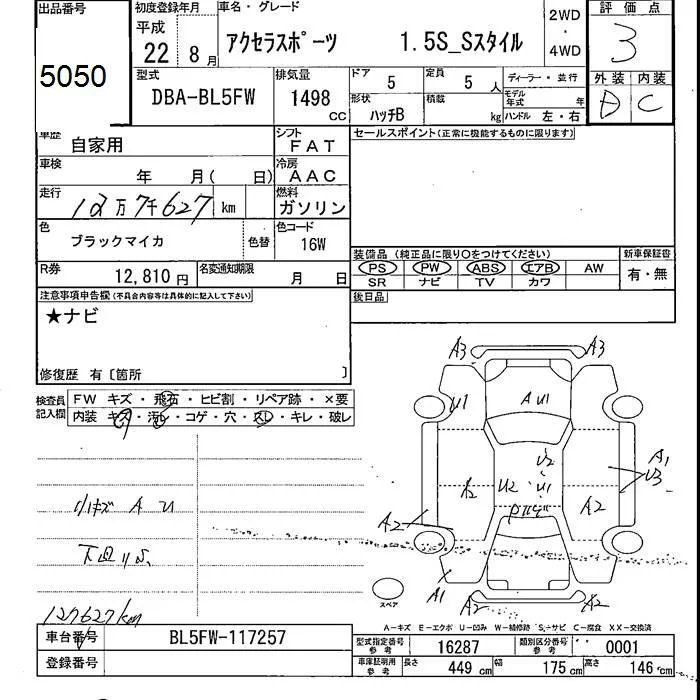 出品番号
5050
初度登録年月
平成
22 8 月
車名・グレード
アクセラスポーツ 1.5S_Sスタイル
2WD
・
4WD
評価点
3
外装 内装
C
型式
DBA-BL5FW
排気量
1498 CC
ドア 5
定員 5 人
形状 ハッチB
積載 kg
ディーラー・並行
モデル年式 年
ハンドル 左・右
車歴 自家用
シフト FAT
車検 年 月( 日)
冷房 AAC
走行 12万7千627 km
燃料 ガソリン
色 ブラックマイカ 色替
色コード 16W
R券 12,810 円
名変通知期限 月 日
セールスポイント(正常に機能するものに限ります)
装備品 (純正品に限り○をつけてください)
新車保証書
PS PW ABS エアB AW
SR ナビ TV カワ
有・無
後日品
注意事項申告欄(不具合内容等は具体的に記入して下さい)
★ナビ
修復歴 有〔箇所 〕
検査員記入欄
FW キズ・飛石・ヒビ割・リペア跡・×要
内装 キズ・汚レ・コゲ・穴・スレ・キレ・破レ
小キズ A U
下回りS
127627km
A3 A3
U1
A U1
U2
U2 U1
A2
A2
A1
U3
A2
A1
A2 A2
スペア
A-キズ E-エクボ U-凹み W-補修跡 S-サビ C-腐食 XX-交換済
車台番号 BL5FW-117257
登録番号
型式指定番号 参考 16287
類別区分番号 参考 0001
車庫証明用 参考
長さ 449 cm
幅 175 cm
高さ 146 cm